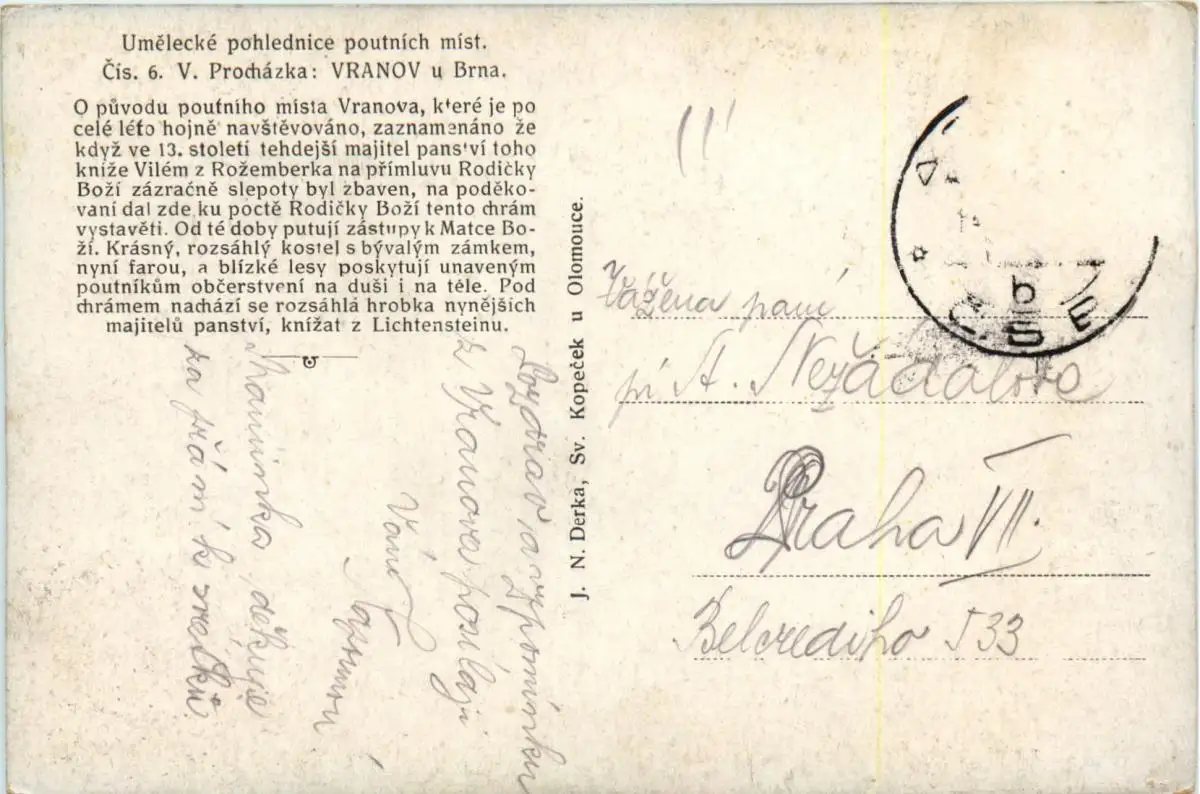 Umělecké pohlednice poutních míst.
Čís. 6. V. Procházka: VRANOV u Brna.
O původu poutního místa Vranova, které je po
celé léto hojně navštěvováno, zaznamenáno že
když ve 13. století tehdejší majitel panství toho
kníže Vilém z Rožemberka na přímluvu Rodičky
Boží zázračně slepoty byl zbaven, na poděko-
vaní dal zde ku poctě Rodičky Boží tento chrám
vystavěti. Od té doby putují zástupy k Matce Bo-
ží. Krásný, rozsáhlý kostel s bývalým zámkem,
nyní farou, a blízké lesy poskytují unaveným
poutníkům občerstvení na duši i na těle. Pod
chrámem nachází se rozsáhlá hrobka nynějších
majitelů panství, knížat z Lichtensteinu.
Pozdrav a vzpomínku
z Vranova posílají
Maminka děkuje
za přání k svátku
J. N. Derka, Sv. Kopeček u Olomouce.
Vážená paní
pí A. Nezádalova
Praha VII.
Belcrediho 533
b